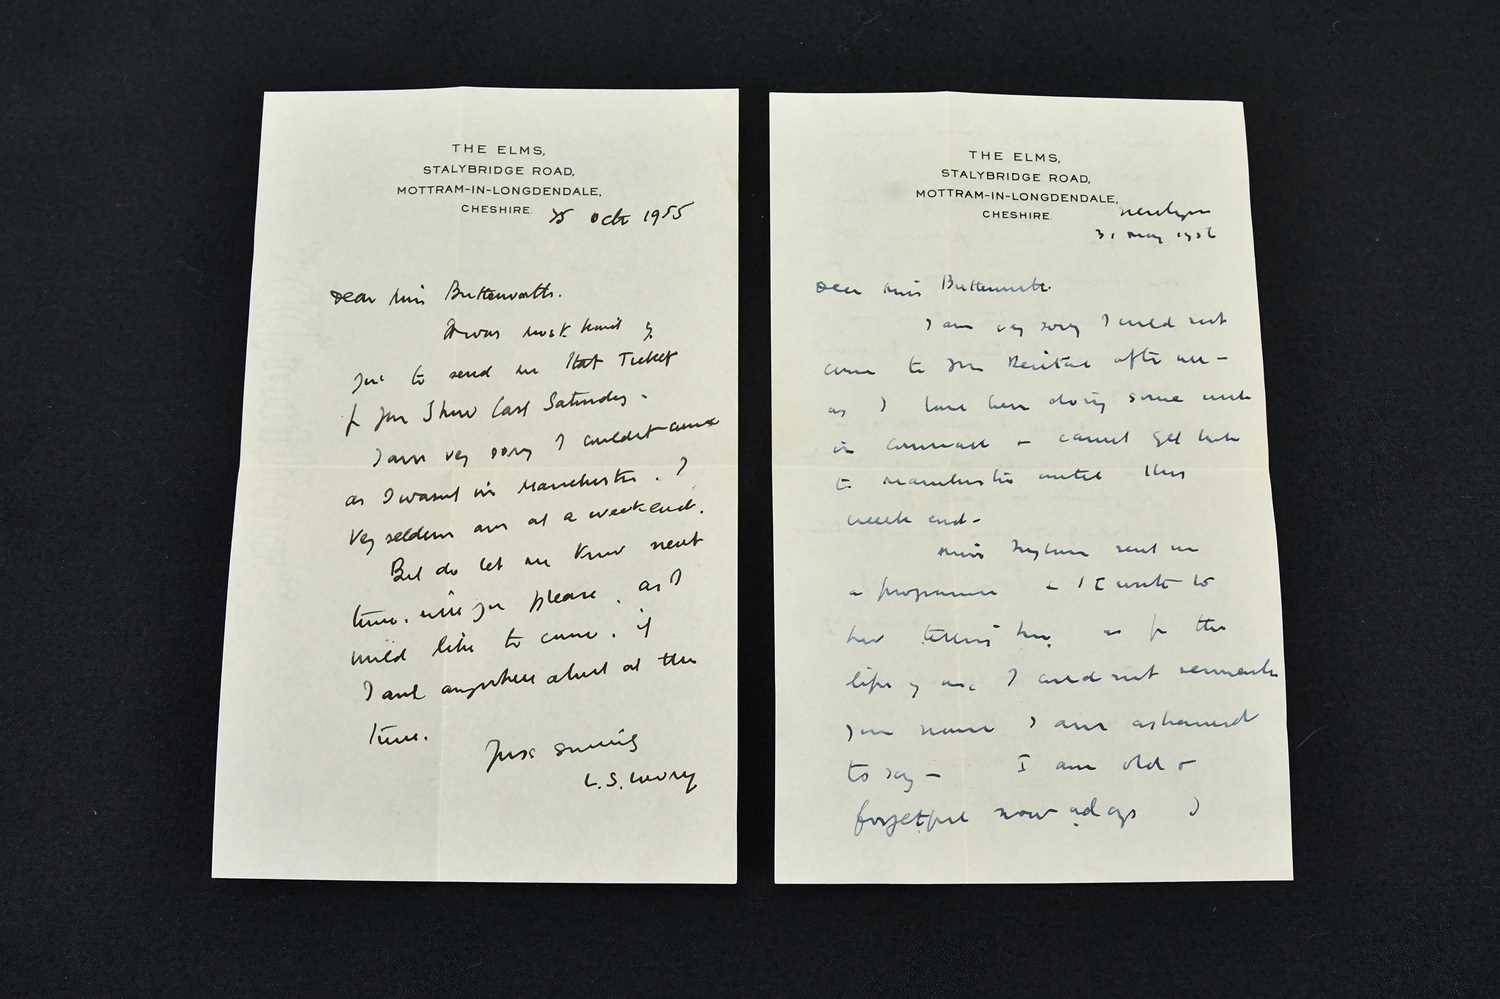 THE ELMS,
STALYBRIDGE ROAD,
MOTTRAM-IN-LONGDENDALE,
CHESHIRE. 25 Oct 1955
Dear Miss Butterworth.
It was most kind of
you to send me that Ticket
for your Show last Saturday.
I am very sorry I couldn't come
as I wasn't in Manchester. I
very seldom am at a weekend.
But do let me know next
time, will you please, as I
would like to come, if
I am anywhere about at the
time.
Yours sincerely
L.S. Lowry
THE ELMS,
STALYBRIDGE ROAD,
MOTTRAM-IN-LONGDENDALE,
CHESHIRE.
31 May 1956
Dear Miss Butterworth.
I am very sorry I could not
come to your Recital after all -
as I have been doing some work
in Cornwall & cannot get back
to Manchester until this
week end -
Miss sent me
a programme & I wrote to
her telling her, as for the
life of me I could not remember
your name I am ashamed
to say - I am old &
forgetful nowadays I